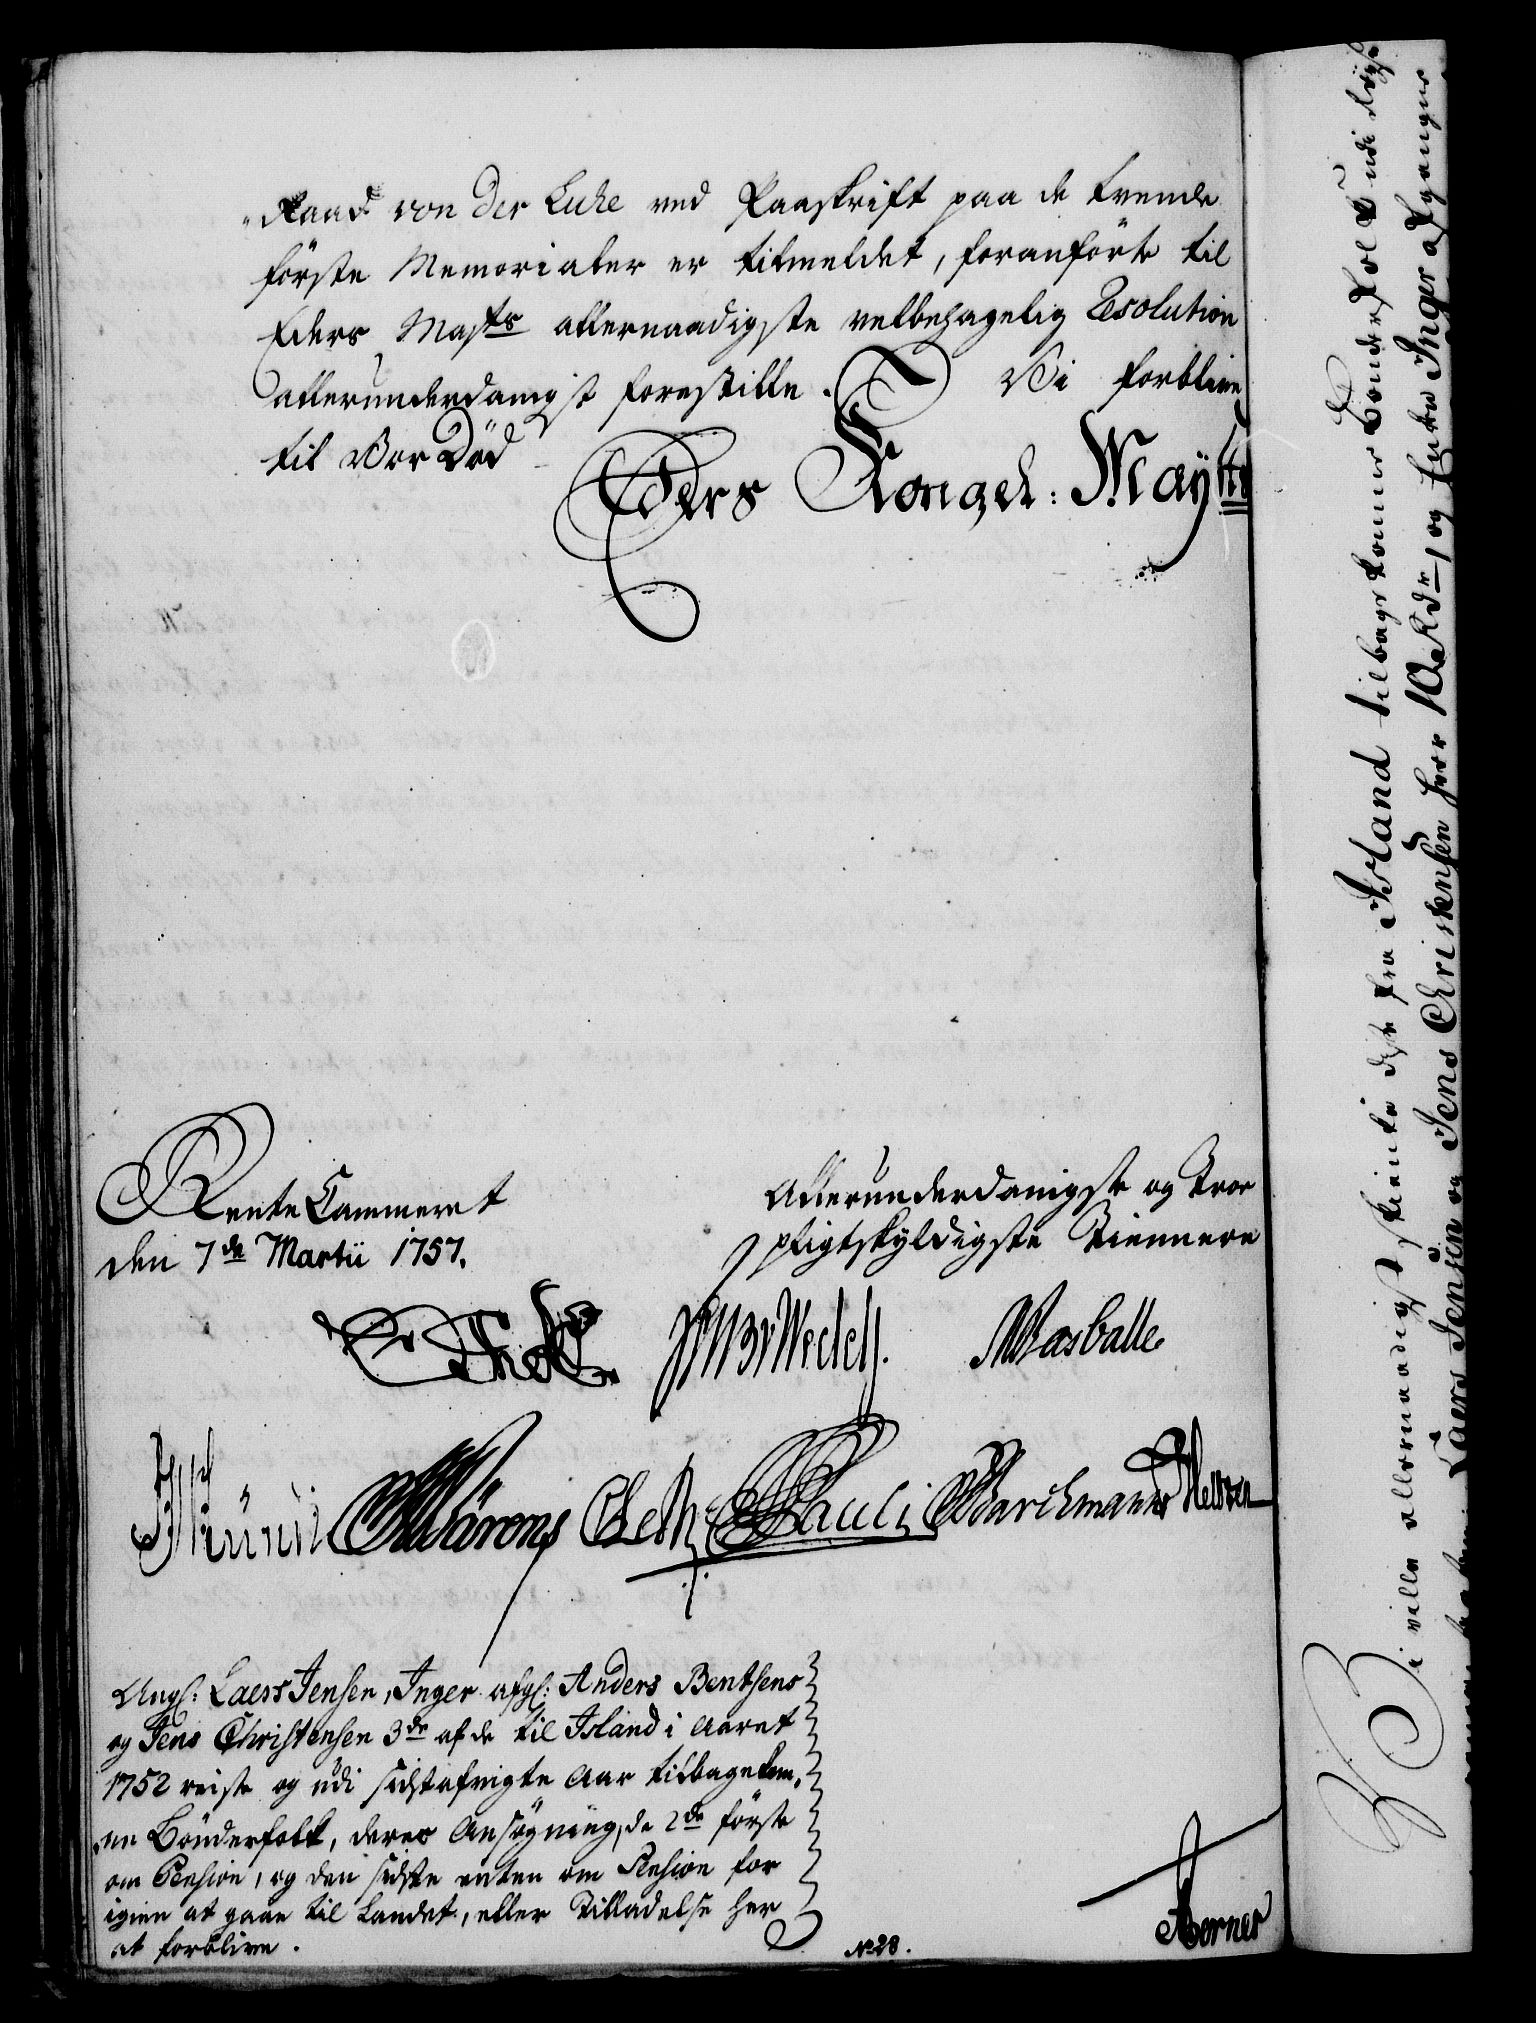 Raad von der Lühe ved Paaskrift paa de tvende
förste Memorialer er tilmeldet, foranförte til
Eders Maj:ts allernaadigste velbehagelig Resolution
allerunderdanigst forestille. Vi forblive
til Vor Död
Eders Kongel: May:tts
Rente Cammeret
den 7de Martii 1757.
Allerunderdanigste og Troe
pligtskyldigste Tiennere
Wedell.
Wasballe
Pauli
Barchmann
Angl: Laers Jensen, Inger afgl: Anders Bentsens
og Jens Christensen 3de af de til Island i Aaret
1752 reiste og udi sidstafvigte Aar tilbagekom¬
ne Bönderfolk, deres Ansøgning, de 2de förste
om Pension, og den sidste enten om Pension for
igien at gaae til Landet, eller Tilladelse her
at forblive.
No 28.
Aerner
Vi ville allernaadigst skienke disse fra Island tilbagekomne Bonderfolk
Laers Jensen og Jens Christensen hver 10 Rdr, og Enken Inger afgangne